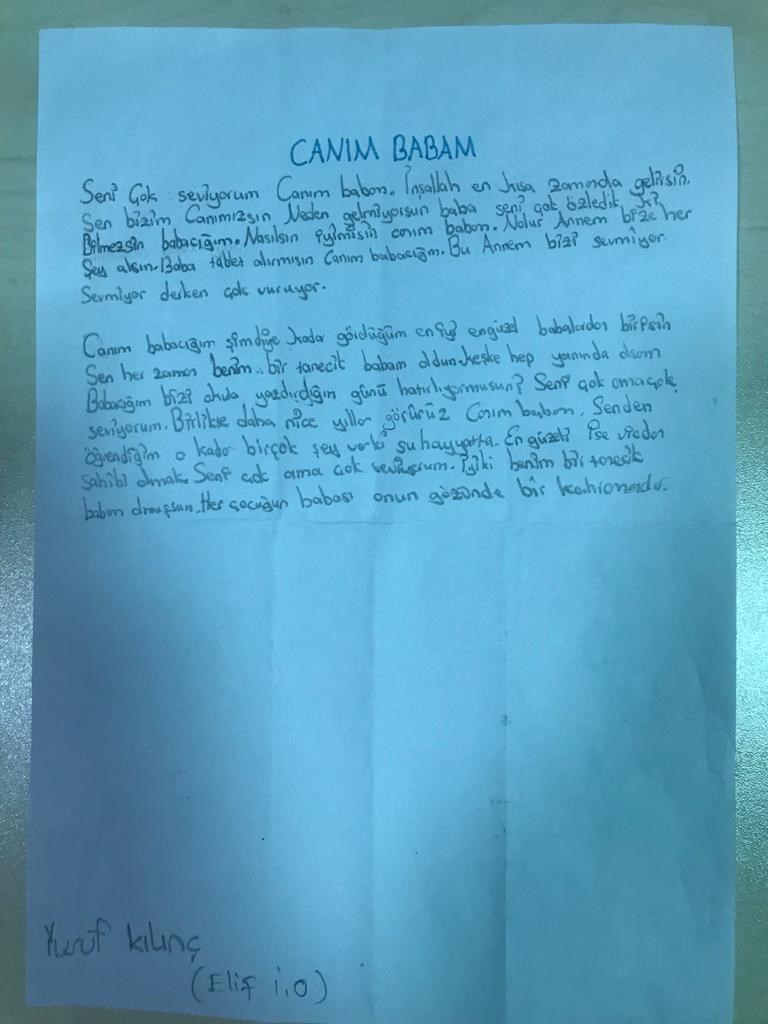 CANIM BABAM
Seni Çok seviyorum Canım babam. İnşallah en kısa zamanda gelirsin.
Sen bizim Canımızsın Neden gelmiyorsun baba seni çok özledik ki
Bilmezsin babacığım. Nasılsın iyimisin canım babam. Nolur Annem bize her
Şey alsın. Baba tablet alırmısın Canım babacığım. Bu Annem bizi sevmiyor.
Sevmiyor derken çok vuruyor.
Canım babacığım şimdiye kadar gördüğüm en iyi engüzel babalardan birisin
Sen her zaman benim bir tanecik babam oldun. keşke hep yanında olsam
Babacığım bizi okula yazdırdığın günü hatırlıyormusun? Seni çok ama çok
seviyorum. Birlikte daha nice yıllar görürüz Canım babam. Senden
öğrendiğim o kadar birçok şey varki şu hayyatta. En güzeli ise
sahibi olmak. Seni çok ama çok seviyorum. iyiki benim bir tanecik
babam Her çocuğun babası onun gözünde bir kahramandır.
Yusuf Kılınç
(Elif i.O)